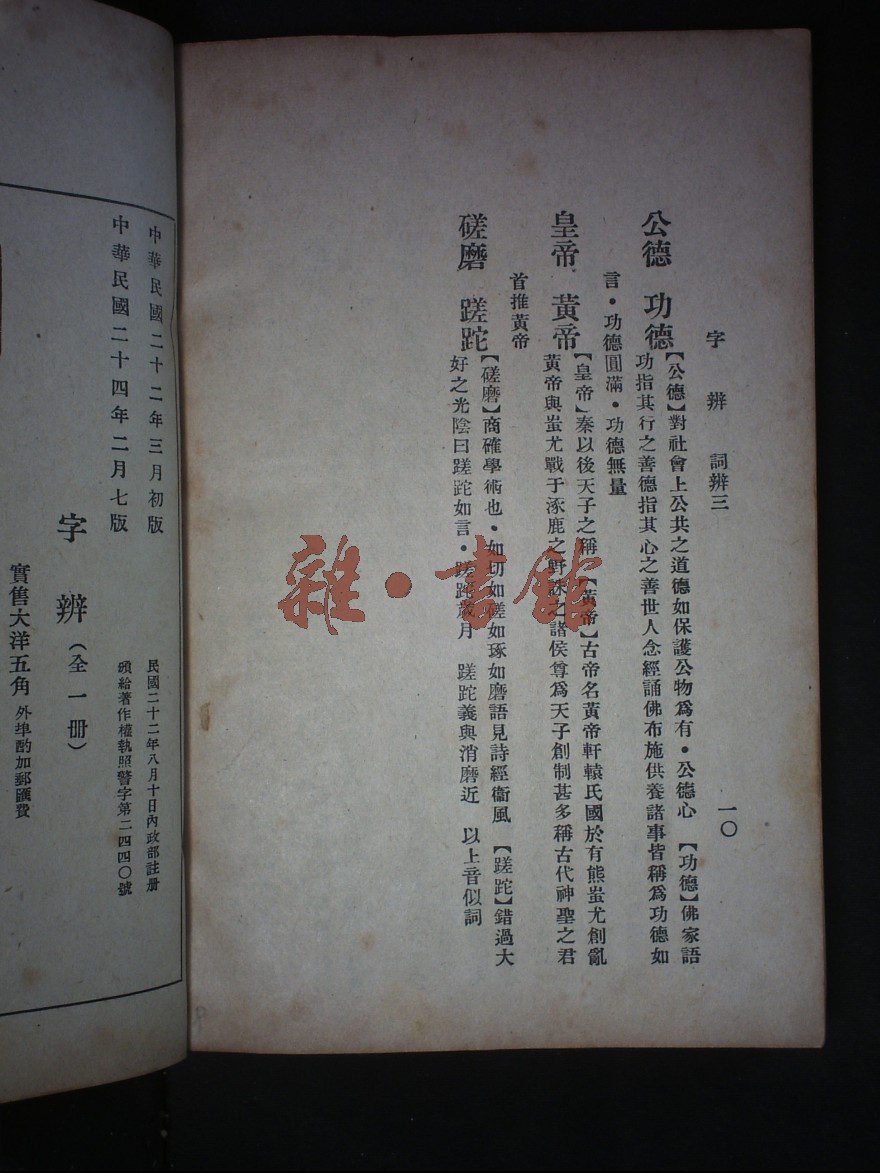 字辨 詞辨三 一〇
公德 功德
【公德】對社會上公共之道德如保護公物爲有・公德心 【功德】佛家語
功指其行之善德指其心之善世人念經誦佛布施供養諸事皆稱爲功德如
言・功德圓滿・功德無量
皇帝 黃帝
【皇帝】秦以後天子之稱 【黃帝】古帝名黃帝軒轅氏國於有熊蚩尤創亂
黃帝與蚩尤戰于涿鹿之野誅之諸侯尊爲天子創制甚多稱古代神聖之君
首推黃帝
磋磨 蹉跎
【磋磨】商確學術也・如切如磋如琢如磨語見詩經衞風 【蹉跎】錯過大
好之光陰曰蹉跎如言・蹉跎歲月 蹉跎義與消磨近 以上音似詞
雜・書館
中華民國二十二年三月初版
中華民國二十四年二月七版
民國二十二年八月十日內政部註册
頒給著作權執照警字第二四四〇號
字辨（全一册）
實售大洋五角 外埠酌加郵匯費